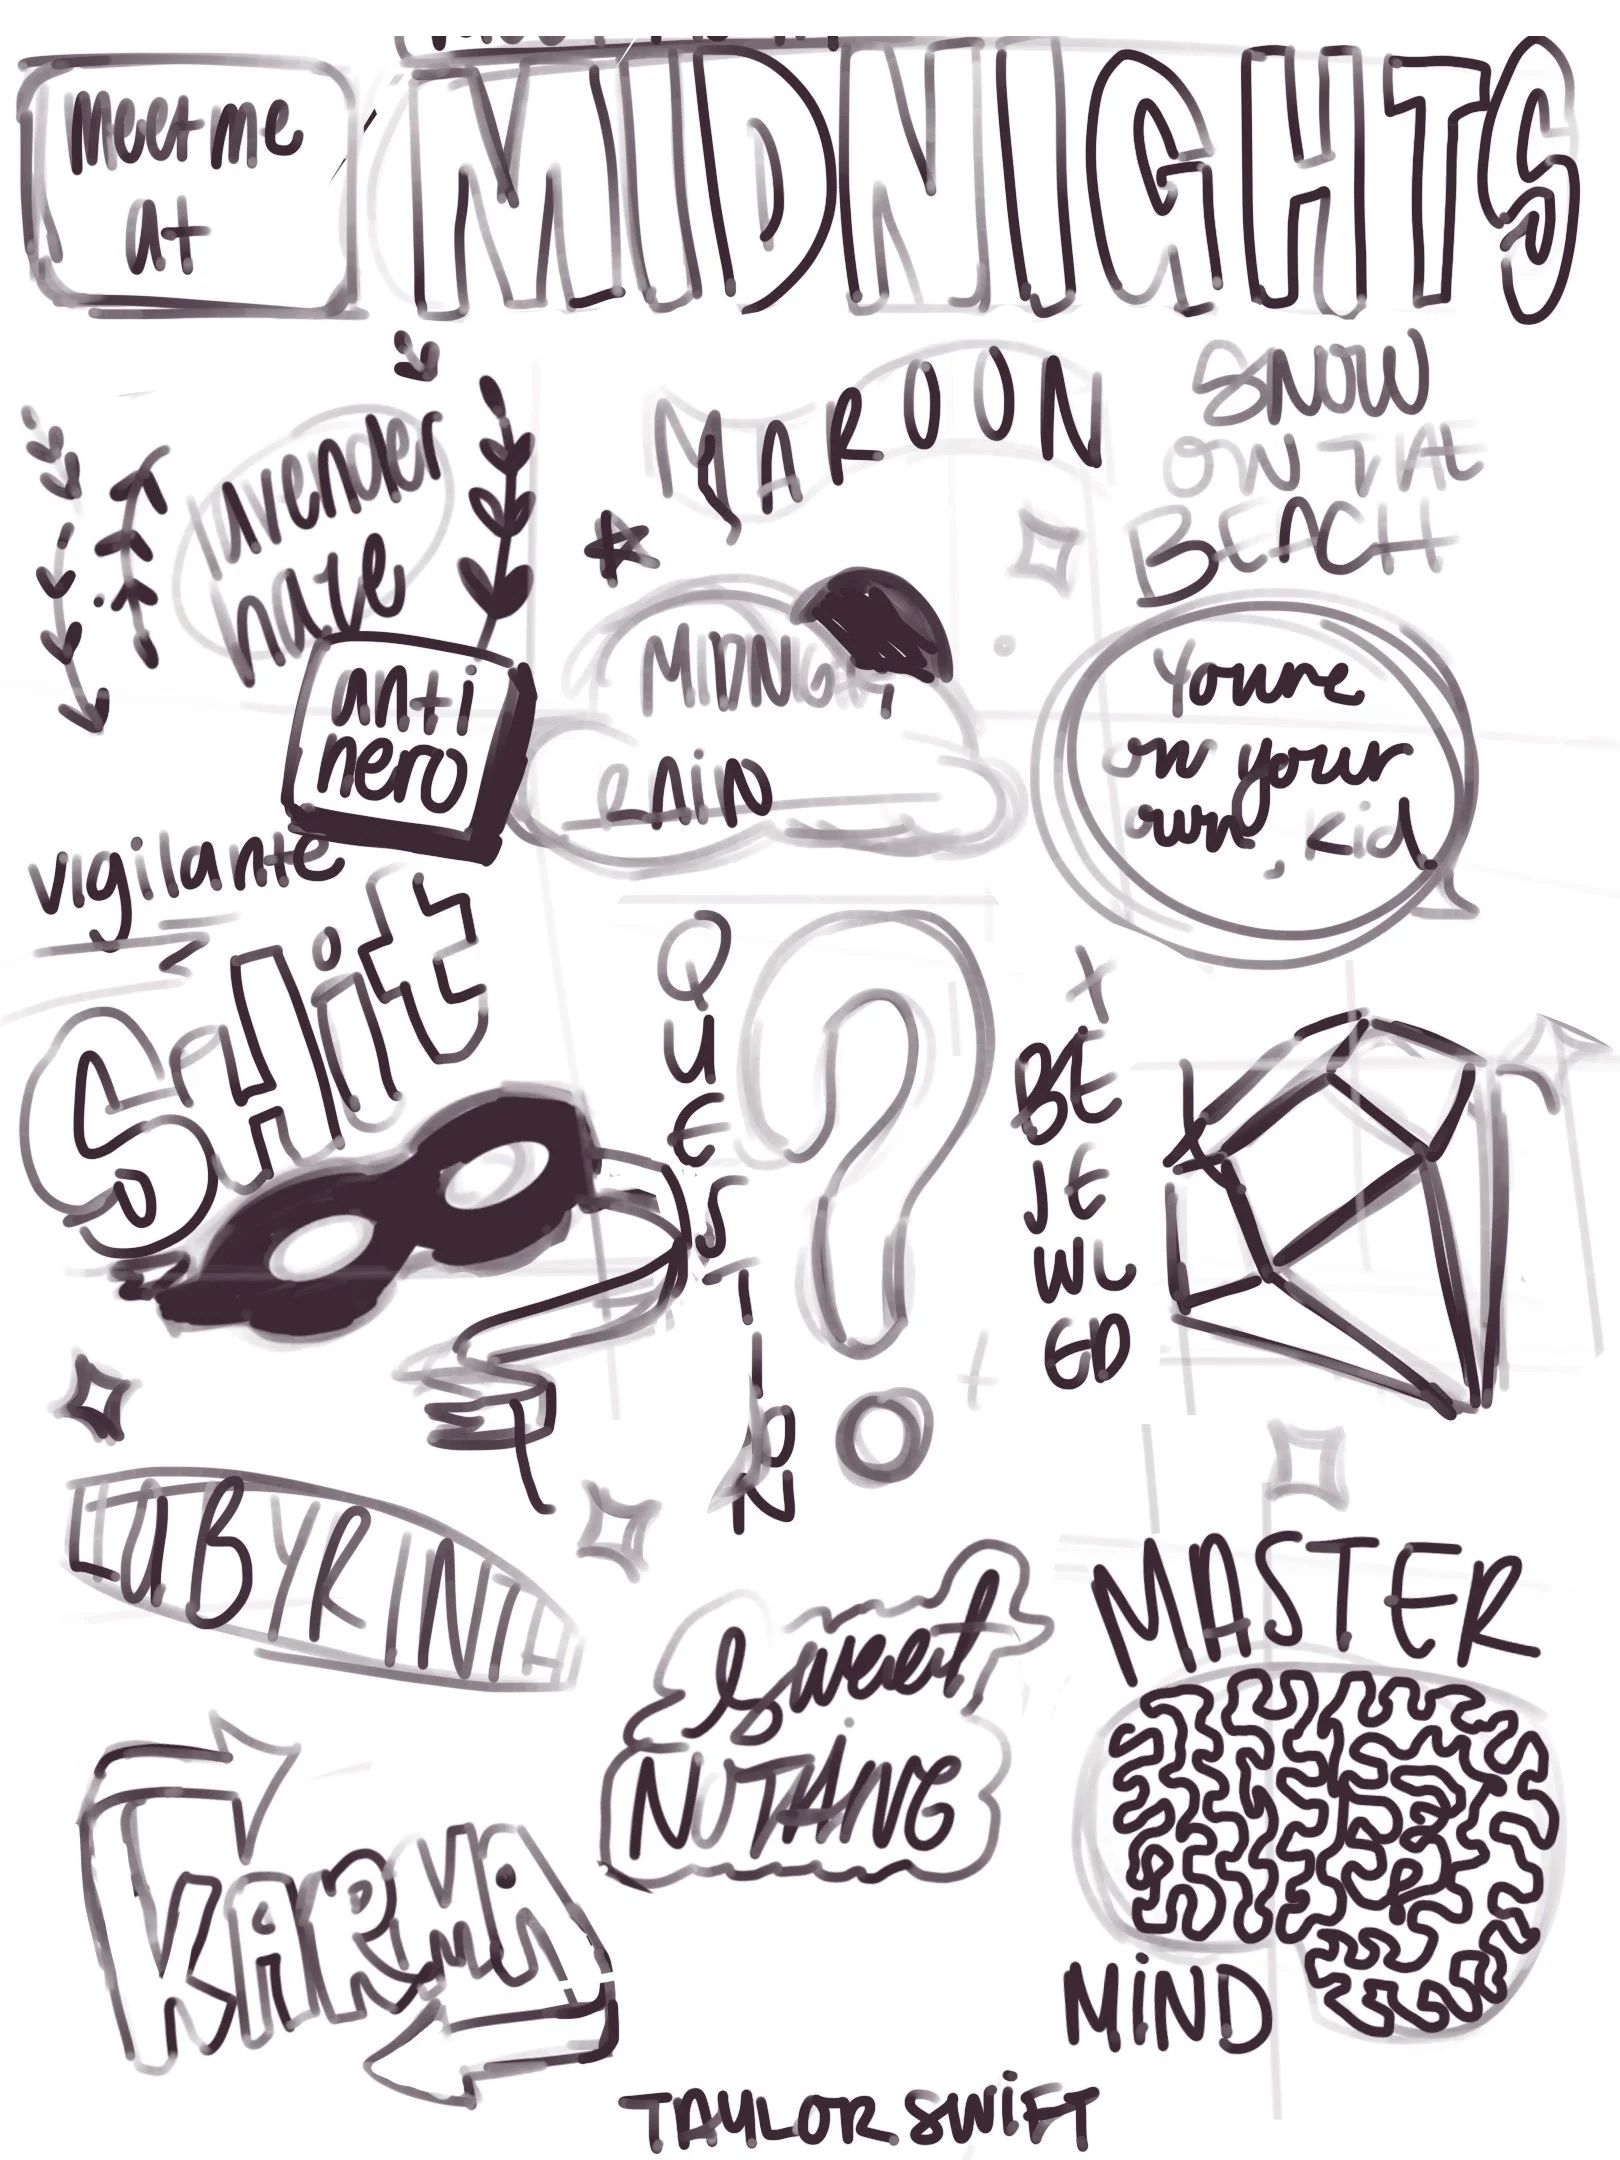 meet me
at
MIDNIGHTS
lavender
haze
MAROON
SNOW
ON THE
BEACH
anti
hero
MIDNIGHT
RAIN
Youre
on your
own, kid
vigilante
SHit
QUESTION
?
BE
JE
WL
ED
LABYRINTH
Sweet
NOTHING
MASTER
MIND
KARMA
TAYLOR SWIFT